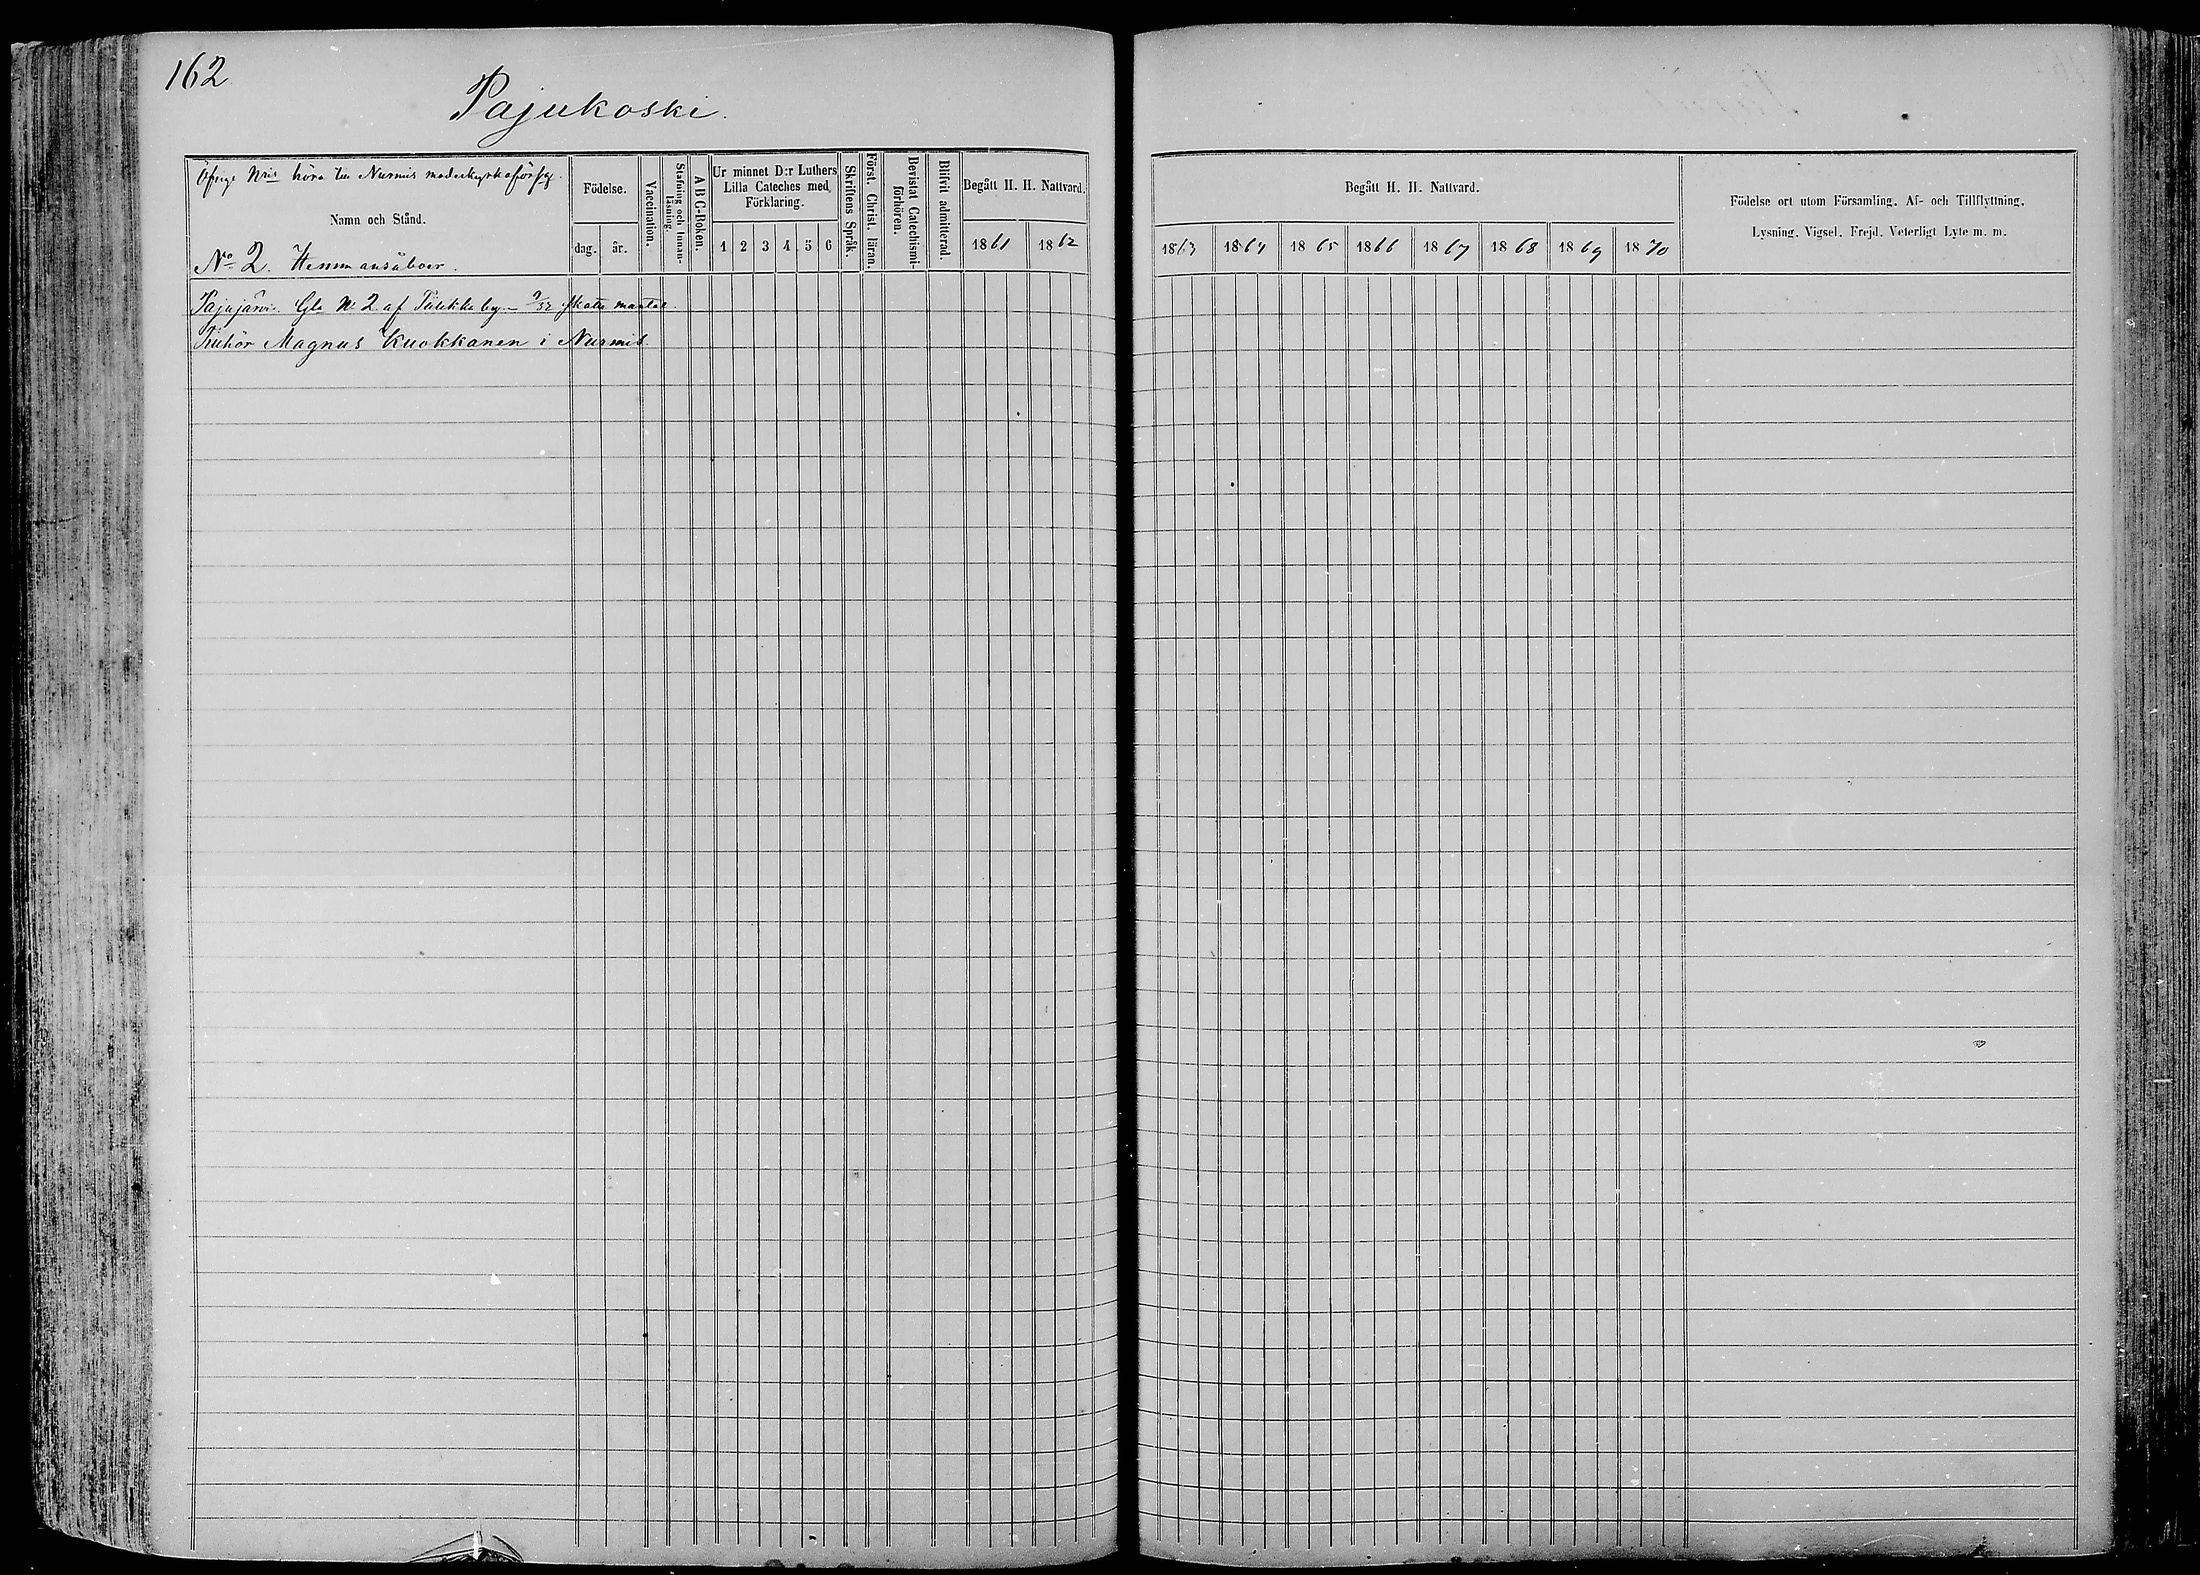 162
Pajukoski.
Öfrige Nris höra till Nurmis moderkyrkoförsg.
Namn och Stånd.
No 2. Hemmansåboer.
Födelse.
dag. år.
Vaccination.
Stafning och Innan-läsning.
A B C-Boken.
Ur minnet D:r Luthers
Lilla Cateches med
Förklaring.
1 2 3 4 5 6
Skriftens Språk.
Först. Christ. läran.
Bevistat Catechismi-förhören.
Blifvit admitterad.
Begått H. H. Nattvard.
1861 1862
Begått H. H. Nattvard.
1863 1864 1865 1866 1867 1868 1869 1870
Födelse ort utom Församling. Af- och Tillflyttning.
Lysning. Vigsel. Frejd. Veterligt Lyte m. m.
Pajujärvi. Gla No 2 af by — 9/32 skatte mantal.
Tillhör Magnus Kuokkanen i Nurmis